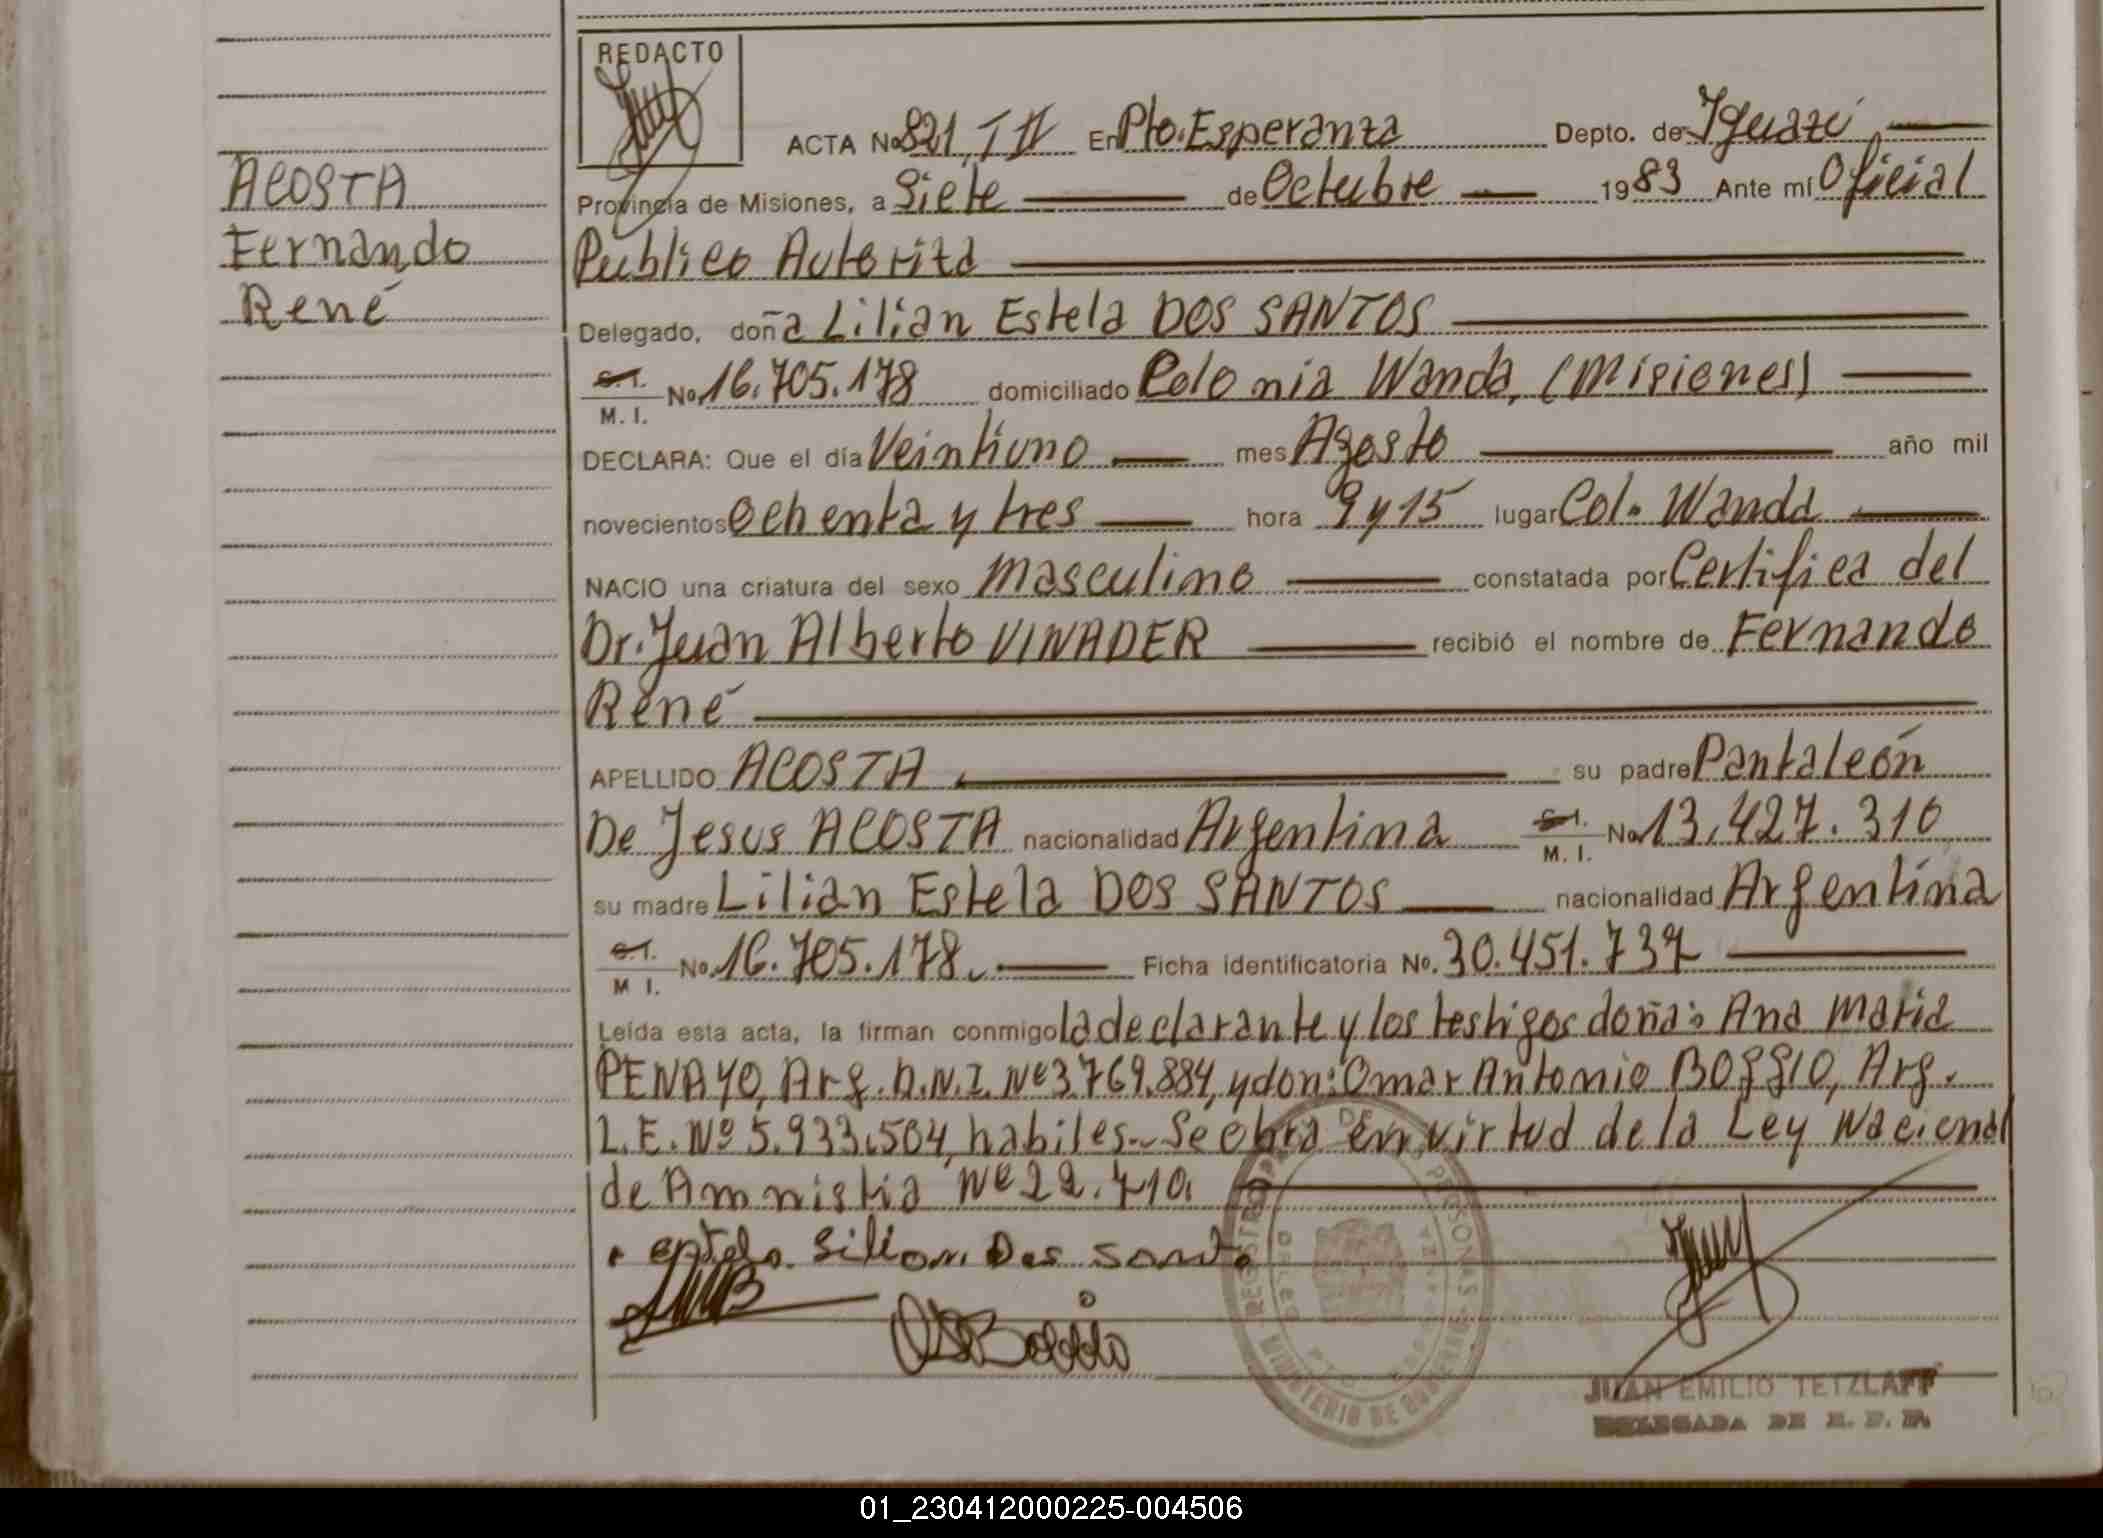 REDACTO
ACTA No 821, T II En Pto. Esperanza Depto. de Iguazú
ACOSTA
Fernando
René
Provincia de Misiones, a Siete de Octubre 1983 Ante mí Oficial
Publico Autoriza
Delegado, doña Lilian Estela DOS SANTOS
C.I.
M. I. No. 16.705.178 domiciliado Colonia Wanda, (Misiones)
DECLARA: Que el día Veintiuno mes Agosto año mil
novecientos Ochenta y tres hora 9 y 15 lugar Col. Wanda
NACIO una criatura del sexo Masculino constatada por Certifica del
Dr. Juan Alberto VINADER recibió el nombre de Fernando
René
APELLIDO ACOSTA su padre Pantaleón
De Jesus ACOSTA nacionalidad Argentina C.I.
M. I. No 13.427.310
su madre Lilian Estela DOS SANTOS nacionalidad Argentina
C.I.
M I. No. 16.705.178. Ficha identificatoria No. 30.451.737
Leída esta acta, la firman conmigo la declarante y los testigos doña: Ana Maria
PENAYO, Arg. D.N.I. Nº 3.769.884, y don: Omar Antonio BOGGIO, Arg.
L.E. Nº 5.933.504, habiles.- Se obra en virtud de la Ley Nacional
de Amnistia Nº 22.410.
estela Lilian Dos Santo
JUAN EMILIO TETZLAFF
DELEGADA DE R. P. P.
MINISTERIO DE GOBIERNO
01_230412000225-004506